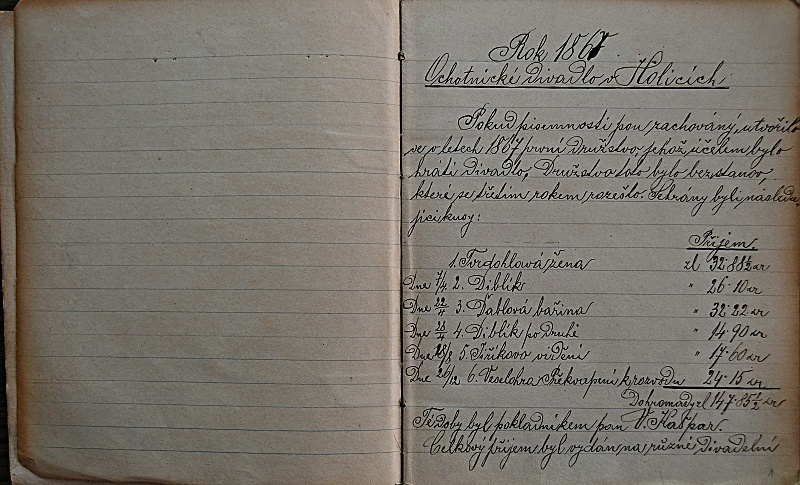 Rok 1867
Ochotnické divadlo v Holicích
Pokud písemnosti jsou zachovány, utvořilo
se v letech 1867 první družstvo, jehož účelem bylo
hráti divadlo. Družstvo toto bylo bez stanov
které se třetím rokem rozešlo. Sehrány byli následu-
jící kusy:
Příjem.
1. Tvrdohlavá žena zl 32·88½ kr
Dne 7/4 2. Diblík " 26·10 kr
Dne 22/4 3. Ďáblová bařina " 32·22 kr
Dne 28/4 4. Diblík po druhé " 14·90 kr
Dne 18/8 5. Jiříkovo vidění " 17·60 kr
Dne 26/12 6. Veselohra Překvapení k rozvodu 24·15 kr
Dohromady zl 147·85½ kr
Té Doby byl pokladníkem pan V. Kašpar.
Celkový příjem byl vydán na různé Divadelní